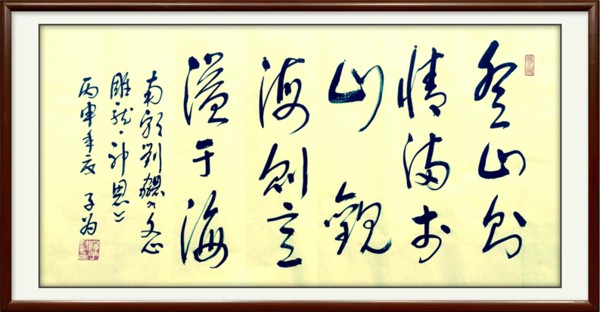 登山则
情满於
山观
海则意
溢于海
南朝刘勰《文心
雕龙·神思》
丙申年夏 子为